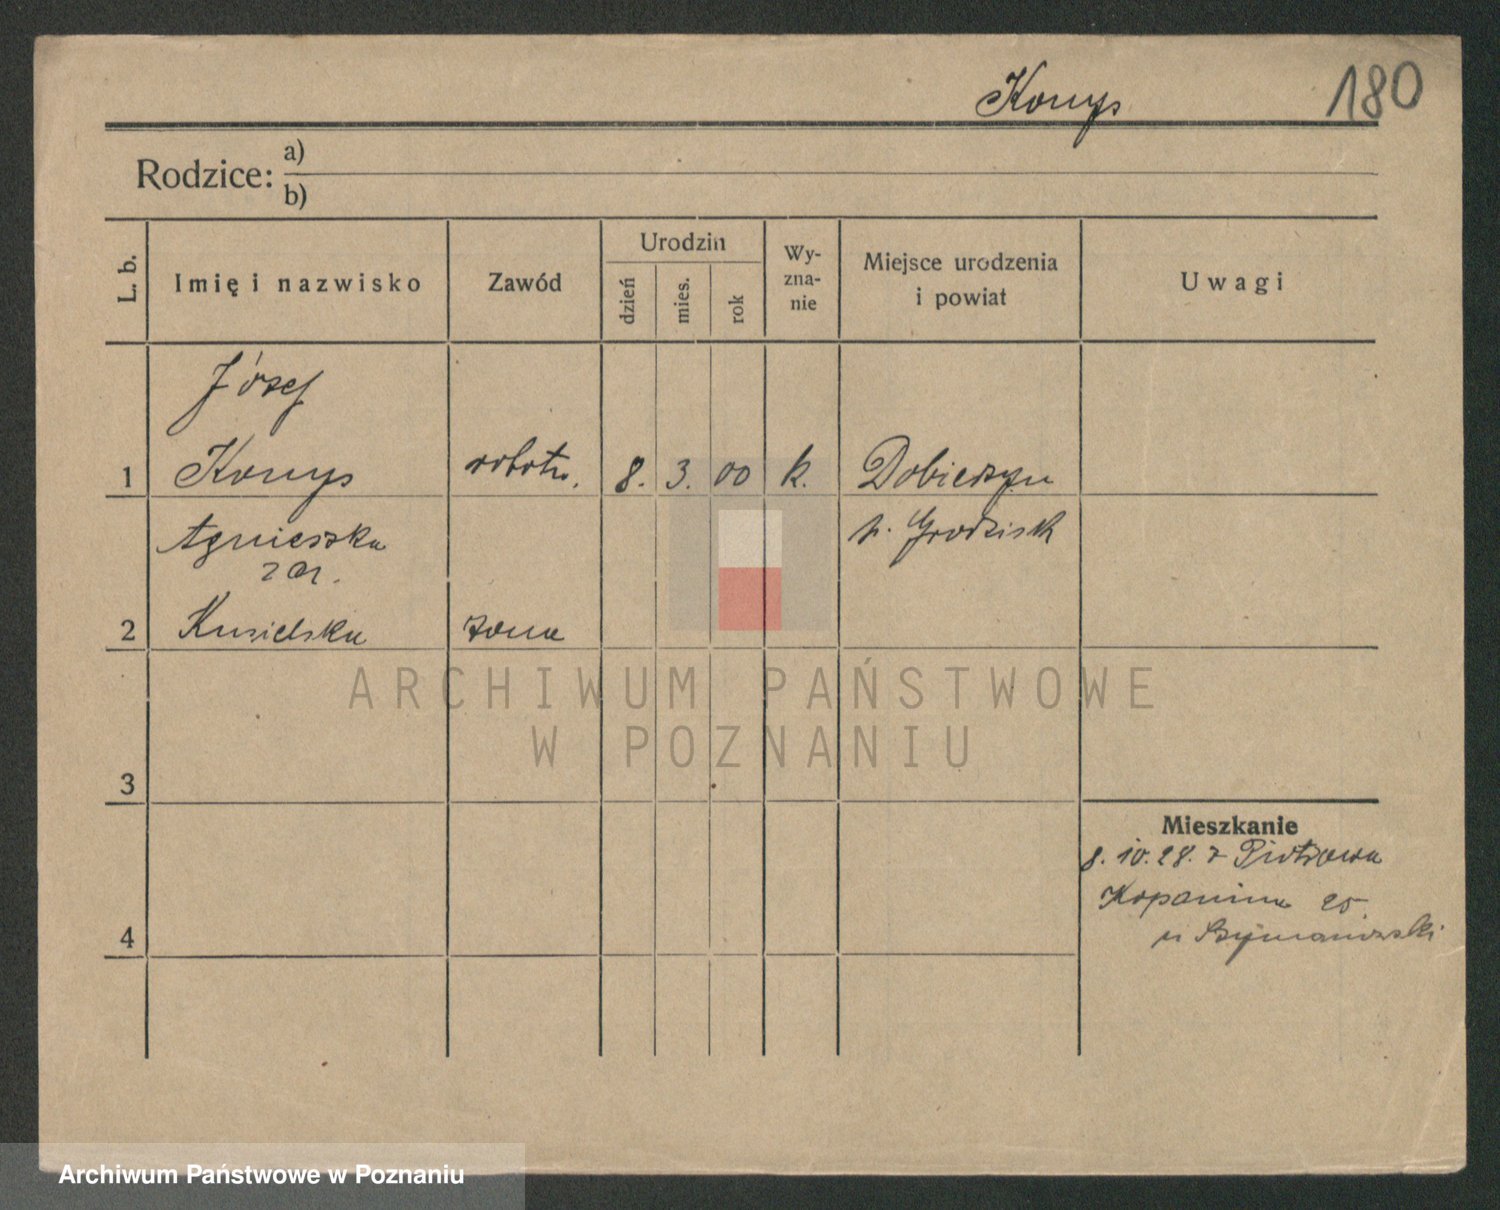 Konys 180
Rodzice: a)
b)
L. b.
Imię i nazwisko
Zawód
Urodzin
dzień
mies.
rok
Wy-
zna-
nie
Miejsce urodzenia
i powiat
Uwagi
Józef
1 Konys robotn. 8. 3. 00 k. Dobieżyn
Agnieszka p. Grodzisk
zar.
2 żona
3
4
Mieszkanie
8.10.28. z Piotrowa
Kopanina 25.
u Szymanowski
ARCHIWUM PAŃSTWOWE
W POZNANIU
Archiwum Państwowe w Poznaniu